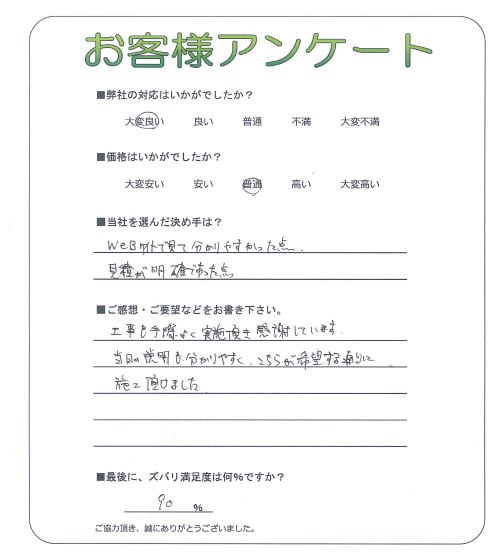 お客様アンケート
■弊社の対応はいかがでしたか？
大変良い 良い 普通 不満 大変不満
■価格はいかがでしたか？
大変安い 安い 普通 高い 大変高い
■当社を選んだ決め手は？
WEBサイトで見て分かりやすかった点、
見積が明確であった点
■ご感想・ご要望などをお書き下さい。
工事も手際よく実施頂き感謝しています。
当日の説明も分かりやすく、こちらが希望する通りに
施工頂けました
■最後に、ズバリ満足度は何%ですか？
90 %
ご協力頂き、誠にありがとうございました。